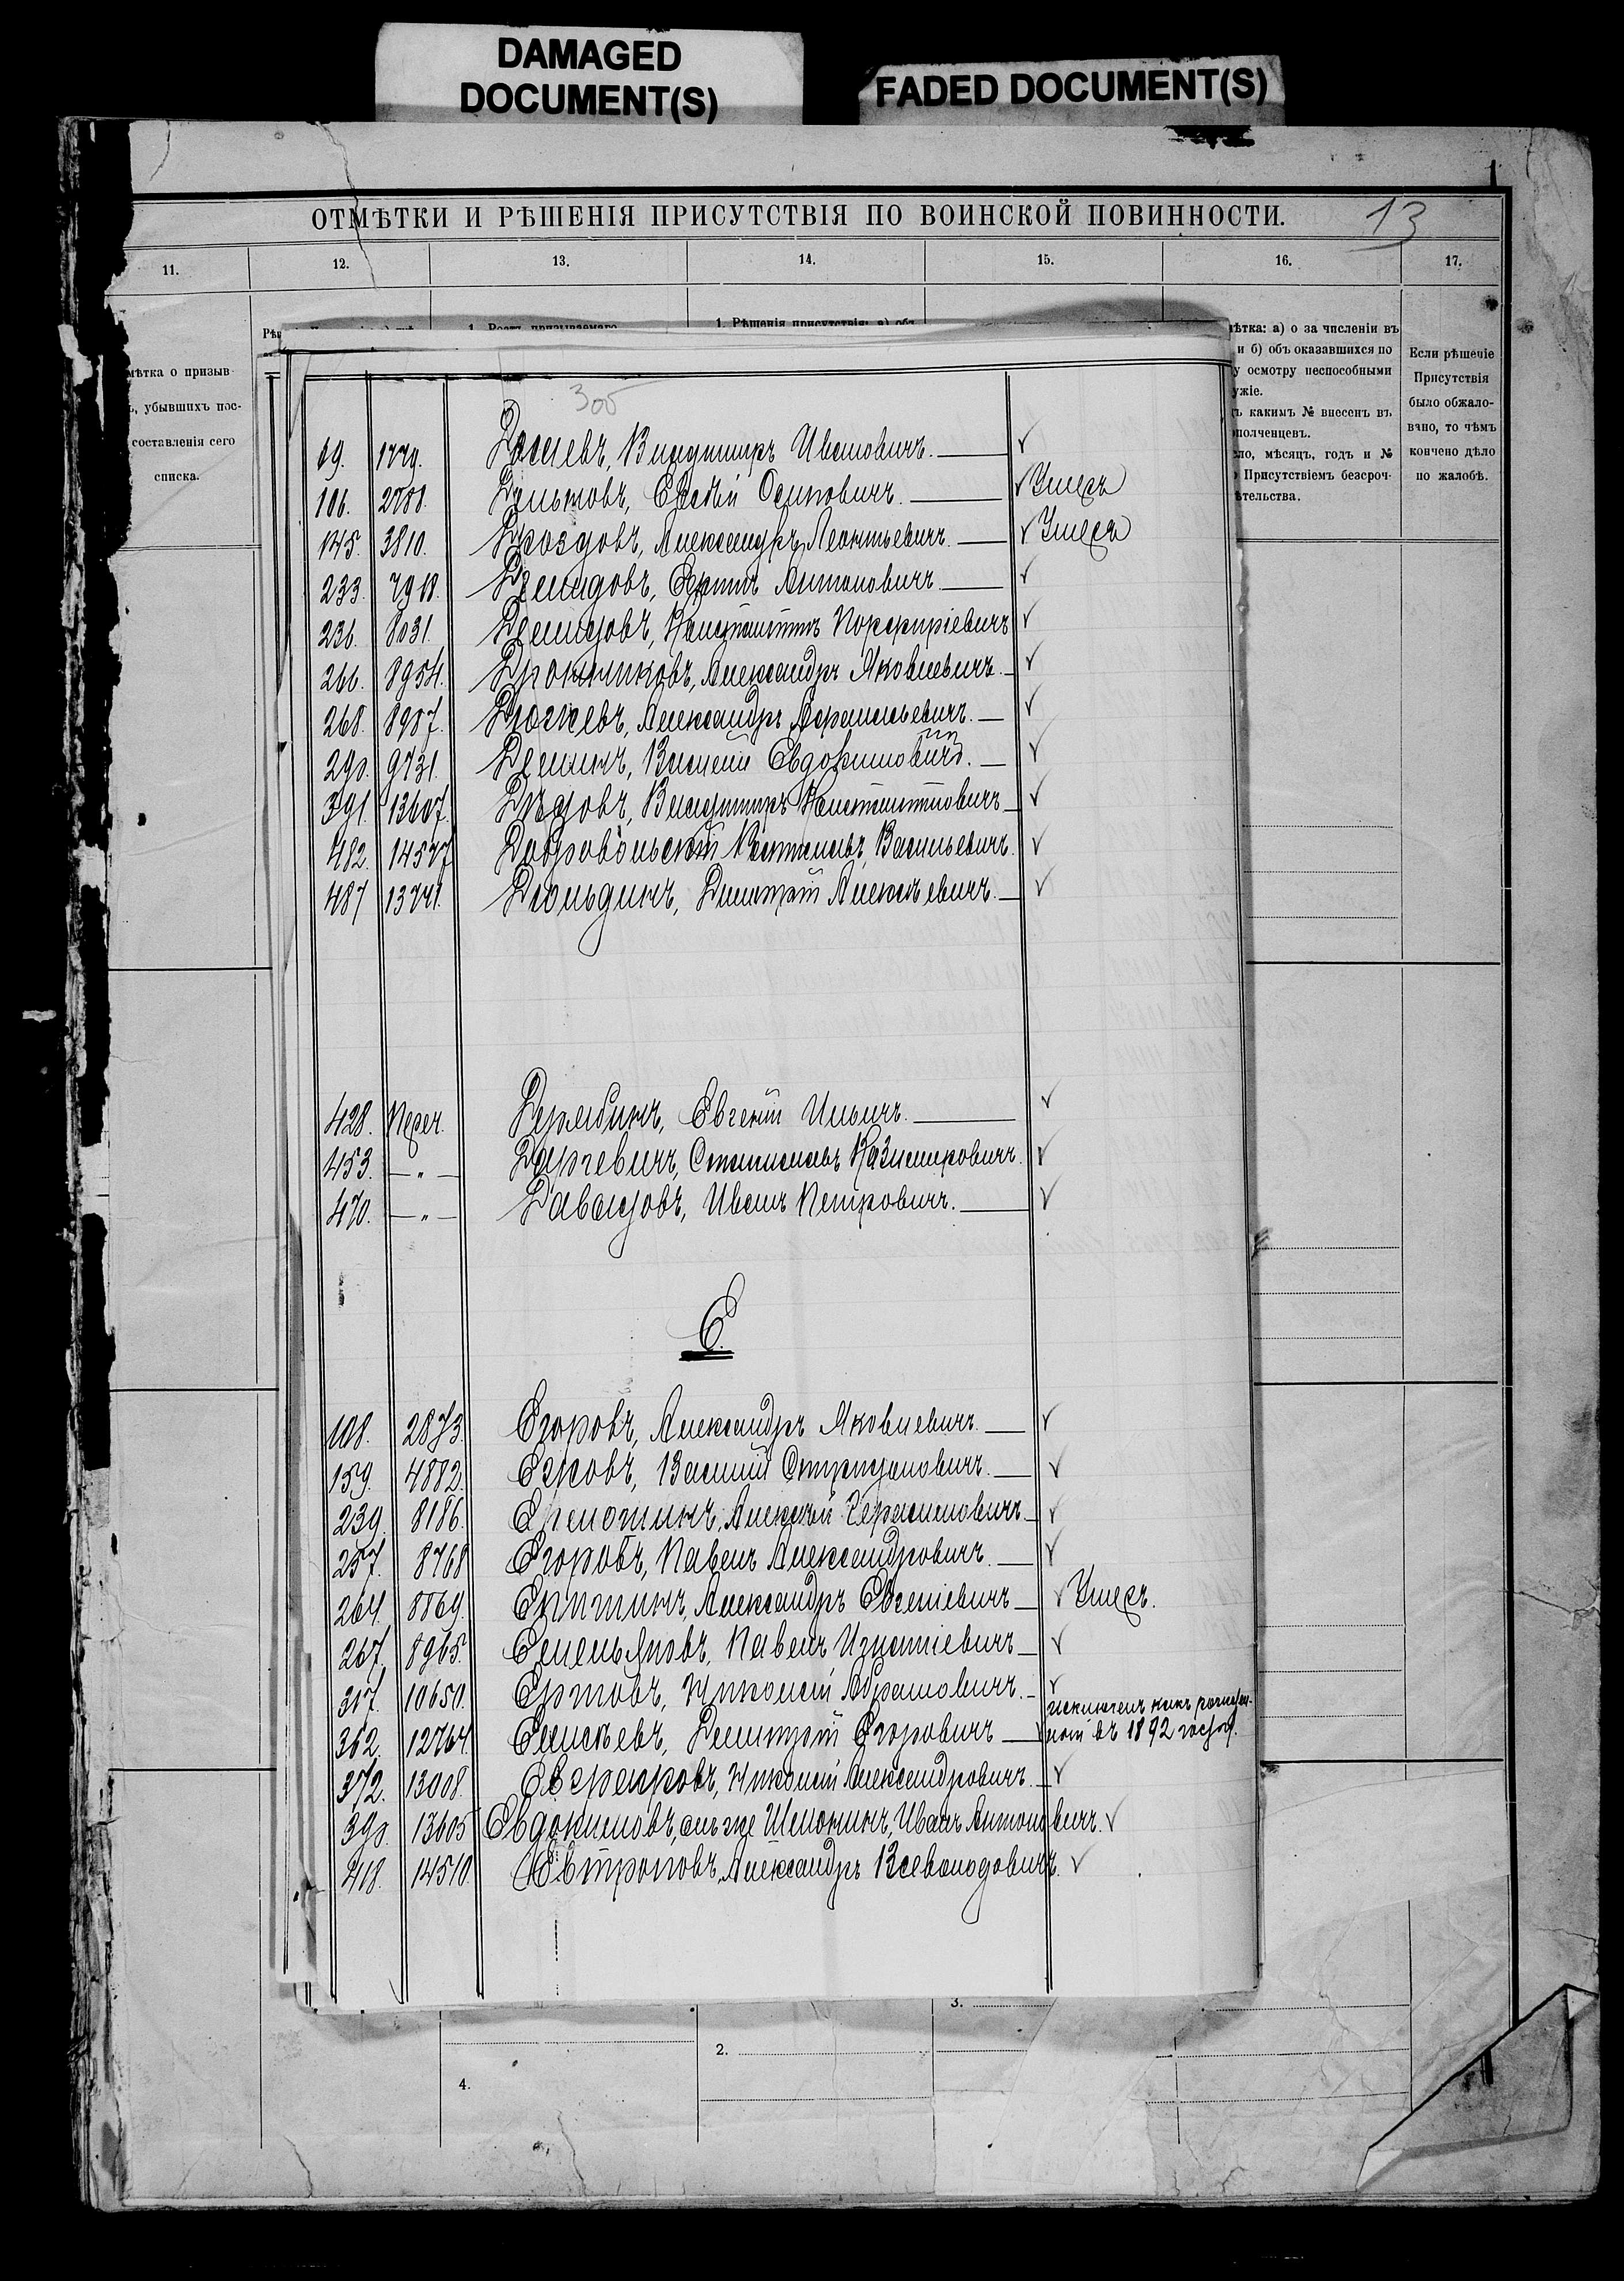 DAMAGED
DOCUMENT(S)
FADED DOCUMENT(S)
ОТМѢТКИ И РѢШЕНІЯ ПРИСУТСТВІЯ ПО ВОИНСКОЙ ПОВИННОСТИ.
13
11. 12. 13. 14. 15. 16. 17.
1. Ростъ призываемаго
1. Рѣшенія присутствія: а) объ
мѣтка о призыв
убывшихъ пос-
составленія сего
списка.
ѣтка: а) о за численіи въ
и б) объ оказавшихся по
у осмотру неспособными
ужіе.
ъ какимъ № внесенъ въ
ополченцевъ.
ло, мѣсяцъ, годъ и №
Присутствіемъ безсроч-
ѣтельства.
Если рѣшеніе
Присутствія
было обжало-
вано, то чѣмъ
кончено дѣло
по жалобѣ.
300
69. 1779. Владиміръ Ивановичъ. ✓
106. 2788. Осиповичъ. ✓ Умеръ
145. 3810. Дроздовъ, Александръ Леонтьевичъ. ✓ Умеръ
233. 7918. Демидовъ, Антоновичъ. ✓
236. 8031. Константинъ Порфиріевичъ ✓
266. 8954. Александръ Яковлевичъ. ✓
268. 8987. Александръ ✓
290. 9731. Деминъ, Василій Евдокимовичъ. ✓
391. 13607. Дѣдовъ, Владиміръ Константиновичъ ✓
482. 14577 Добровольскій Васильевичъ. ✓
487 13741. Дмитрій Алексѣевичъ. ✓
428. Переч. Дерябинъ, Евгеній Ильичъ. ✓
453. — „ — Станиславъ Казимировичъ. ✓
470. — „ — Давыдовъ, Иванъ Петровичъ. ✓
Е.
108. 2873. Егоровъ, Александръ Яковлевичъ. ✓
159. 4882. Василій ✓
239. 8186. Алексѣй Герасимовичъ ✓
257. 8768 Егоровъ, Павелъ Александровичъ. ✓
264. 8869. Александръ Евсеніевичъ ✓ Умеръ.
267. 8965. Емельяновъ, Павелъ Игнатіевичъ ✓
317. 10650. Николай Абрамовичъ. ✓
исключенъ какъ
362. 12764. Елисѣевъ, Дмитрій Егоровичъ ✓ въ 1892 году.
372. 13008. Николай Александровичъ. ✓
390. 13605 Евдокимовъ, онъ же Иванъ Антоновичъ. ✓
418. 14510 Евтроповъ, Александръ Всеволодовичъ. ✓
3.
2.
4.